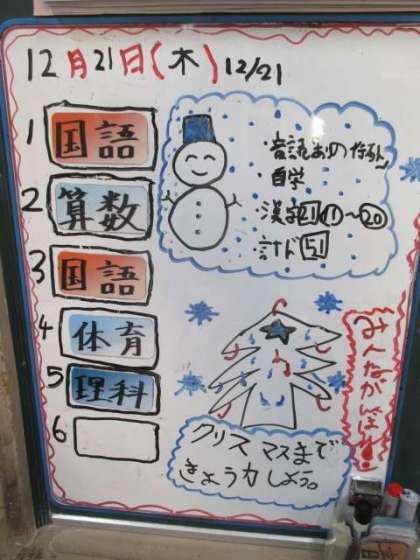 12月21日(木) 12/21
1 国語
2 算数
3 国語
4 体育
5 理科
6
・音読
・自学
・漢字 ①〜⑳
・計ド 51
みんながんばれ!
クリスマスまで
きょう力しよう。